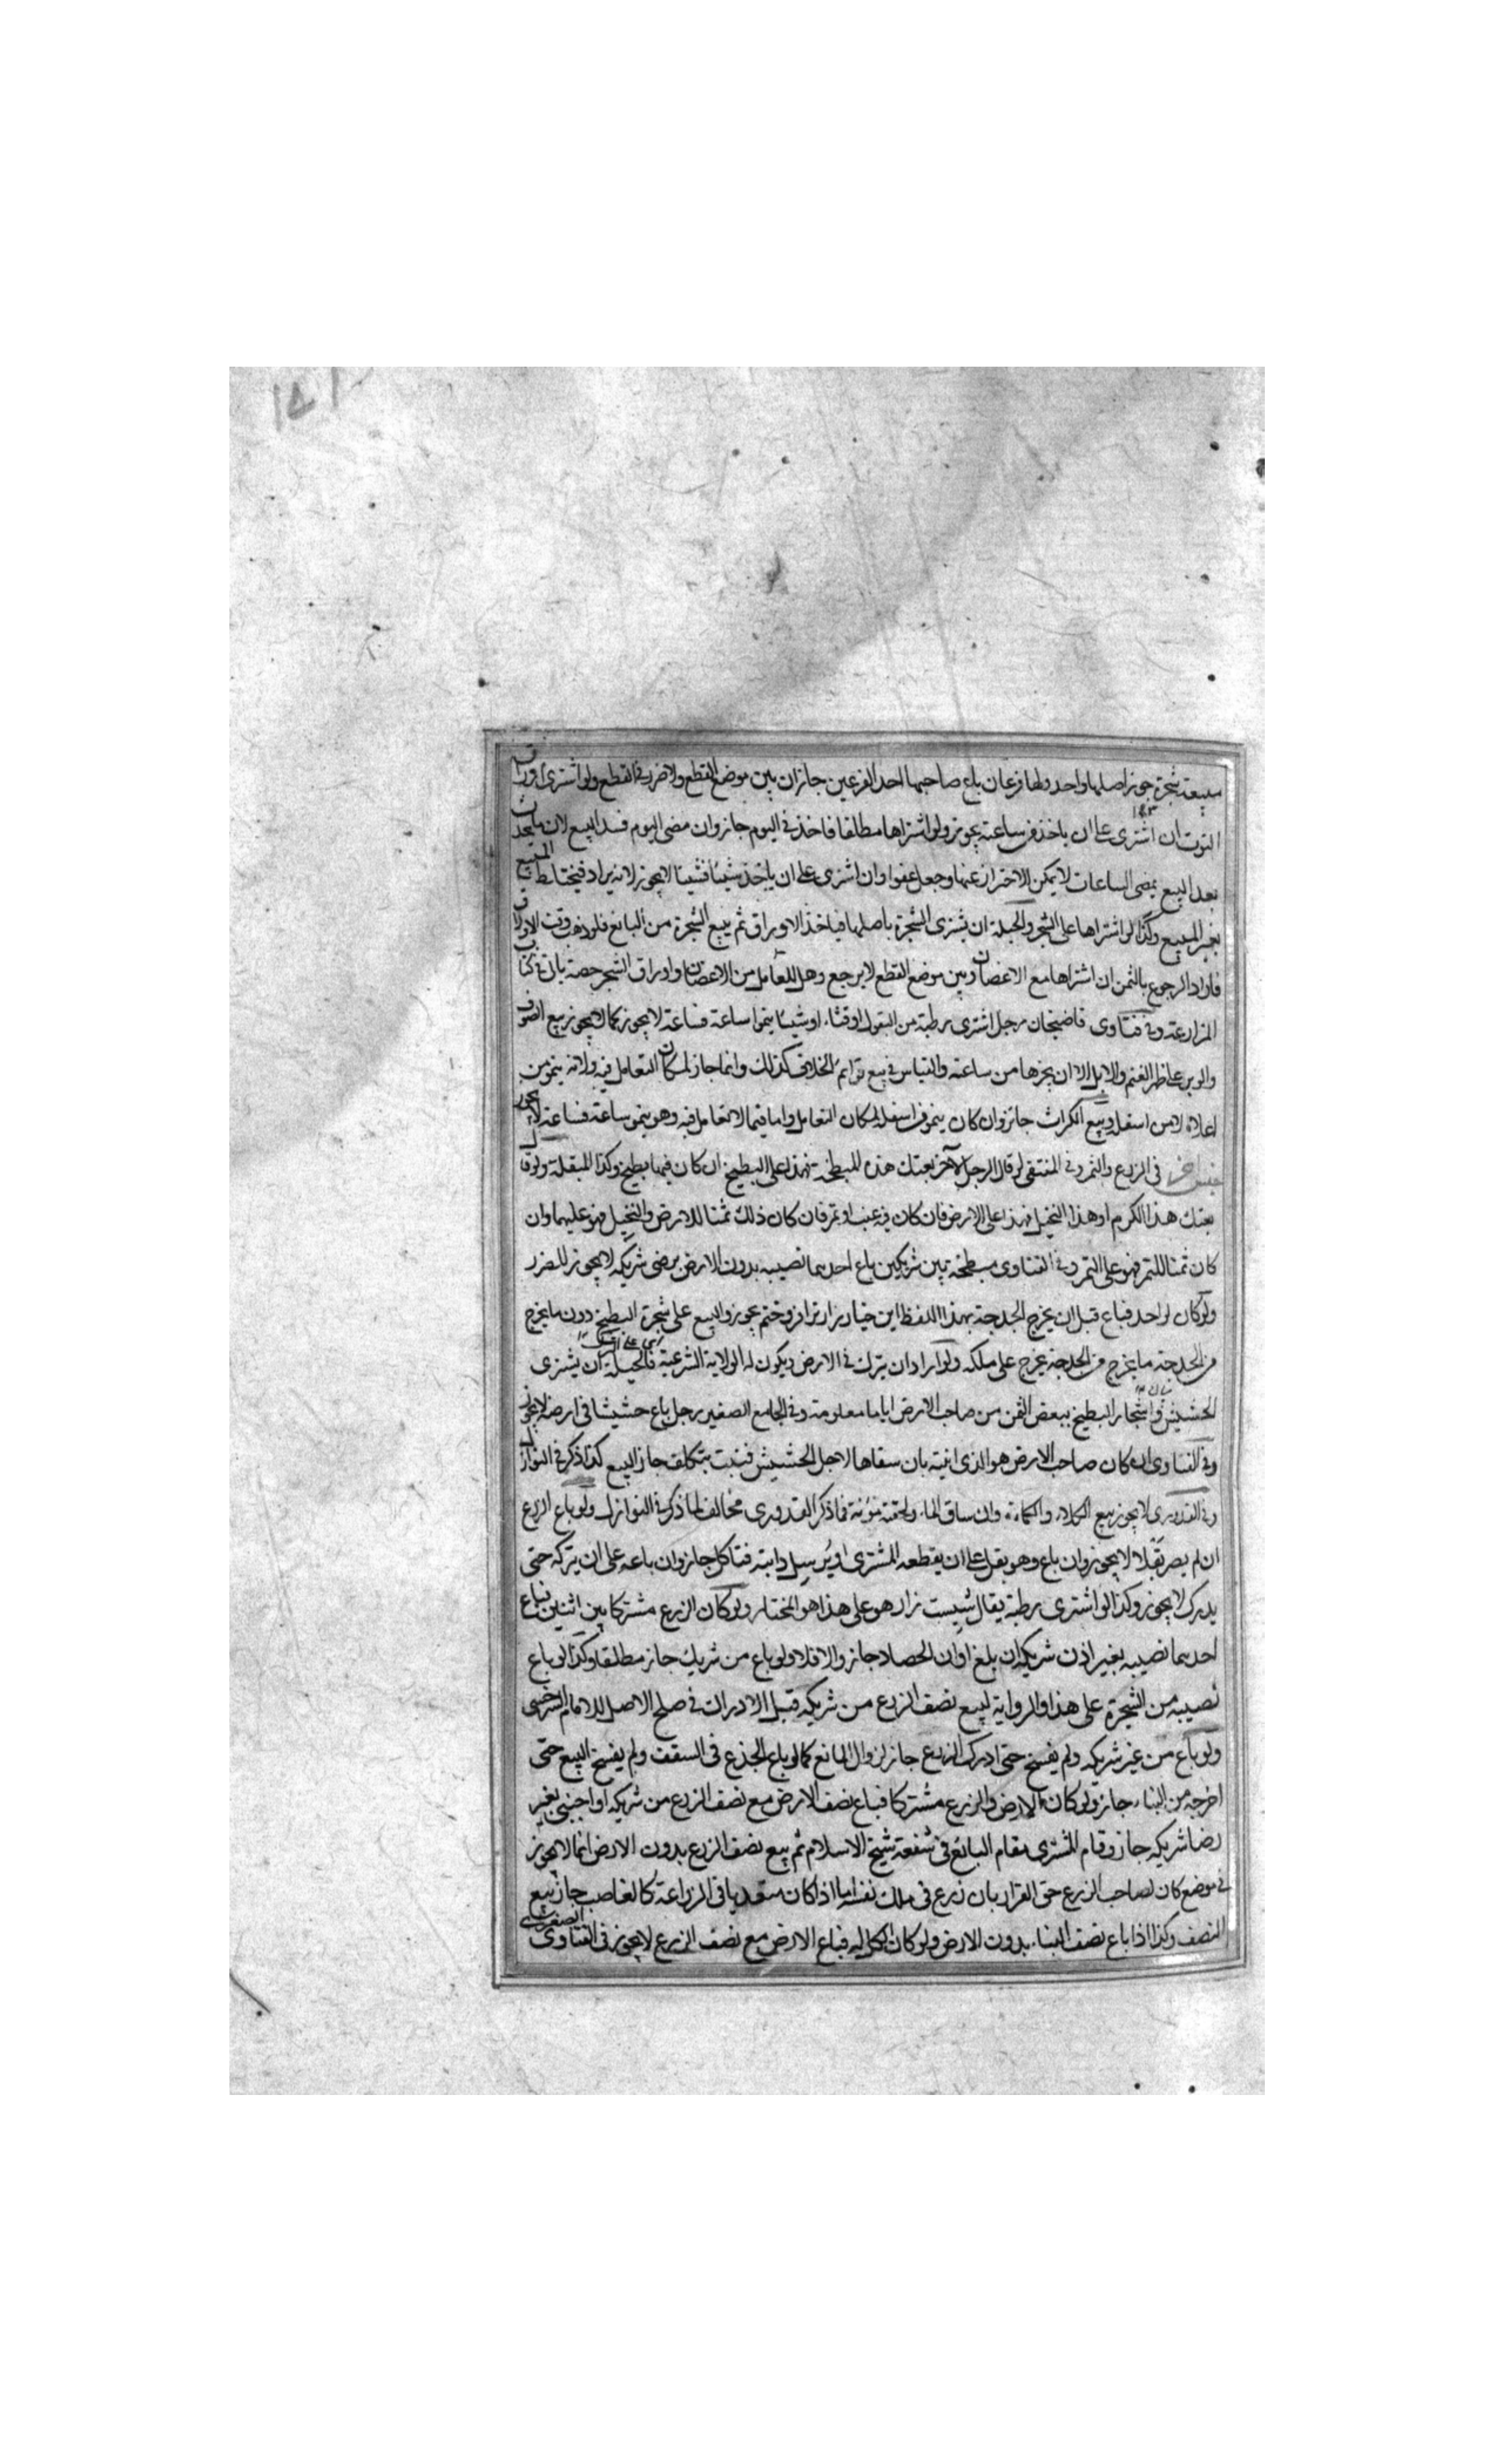 مبيعة شجرة جوز اصلها واحد ولها فرعان باع صاحبها احد الفرعين جاز ان بين موضع القطع ولا ضرر في القطع ولو اشترى اوراق
التوت ان اشترى على ان ياخذ من ساعته يجوز ولو اشتراها مطلقا فاخذ في اليوم جاز وان مضى اليوم فسد البيع لان ما يحدث
بعد البيع بمضى الساعات لا يمكن الاحتراز عنها وجعل عفوا وان اشترى على ان ياخذ شيئا فشيئا لا يجوز لانه يزاد فيختلط المبيع
بغير المبيع وكذا لو اشتراها على الشجر والحيلة ان يشترى الشجرة باصلها فياخذ الاوراق ثم يبيع الشجرة من البائع فلو ذهب وقت الاوراق
فاراد الرجوع بالثمن ان اشتراها مع الاغصان وبين موضع القطع لا يرجع وهل للعامل من الاغصان واوراق الشجر حصة ياتى في كتاب
المزارعة وفي فتاوى قاضيخان رجل اشترى رطبة من البقول او قثاء او شيئا ينموا ساعة فساعة لا يجوز كما لا يجوز بيع الصوف
والوبر على ظهر الغنم والابل الا ان يجزها من ساعته والقياس في بيع قوائم الخلاف كذلك وانما جاز لمكان التعامل فيه ولانه ينمو من
اعلاه لا من اسفله وبيع الكراث جائز وان كان ينمو من اسفله لمكان التعامل واما فيما لا تعامل فيه وهو ينمو ساعة فساعة لا يجوز
جنس اخر في الزرع والثمر وفي المنتقى لو قال الرجل لاخر بعتك هذه المبطخة فهذا على البطيخ ان كان فيها بطيخ وكذا المبقلة ولو قال
بعتك هذا الكرم او هذا النخيل فهذا على الارض فان كان فيه عنب او تمر فان كان ذلك ثمنا للارض والنخيل فهو عليهما وان
كان ثمنا للتمر فهو على التمر وفي الفتاوى مبطخة بين شريكين باع احدهما نصيبه بدون الارض برضى شريكه لا يجوز للضرر
ولو كان لواحد فباع قبل ان يخرج الحدجة بهذا اللفظ اين خيار زار ترا فروختم يجوز والبيع على شجرة البطيخ دون ما يخرج
من الحدجة ما يخرج من الحدجة يخرج على ملكه ولو اراد ان يترك في الارض ويكون له الولاية الشرعية فالحيلة ان يشترى
الحشيش واشجار البطيخ ببعض الثمن من صاحب الارض اياما معلومة وفي الجامع الصغير رجل باع حشيشا في ارضه لا يجوز
وفي الفتاوى ان كان صاحب الارض هو الذى انبته بان سقاها لاجل الحشيش فنبتت بتكلف جاز البيع كذا ذكر في النوازل
وفي القدورى لا يجوز بيع الكلاء والكماءة وان ساق الماء ولحقته مؤنة فما ذكر القدورى مخالف لما ذكر في النوازل ولو باع الزرع
ان لم يصر بقلا لا يجوز وان باع وهو بقل على ان يقطعه المشترى او يرسل دابته فتاكل جاز وان باعه على ان يتركه حتى
يدرك لا يجوز وكذا لو اشترى رطبة يقال شبست زار هو على هذا هو المختار ولو كان الزرع مشتركا بين اثنين فباع
احدهما نصيبه بغير اذن شريكه ان بلغ اوان الحصاد جاز والا فلا ولو باع من شريك جاز مطلقا وكذا لو باع
نصيبه من الشجرة على هذا والرواية لبيع نصف الزرع من شريكه قبل الادراك في صلح الاصل للامام السرخسى
ولو باع من غير شريكه ولم يفسخ حتى ادرك الزرع جاز لزوال المانع كما لو باع الجذع في السقف ولم يفسخ البيع حتى
اخرجه من البناء جاز ولو كان الارض والزرع مشتركا فباع نصف الارض مع نصف الزرع من شريكه او اجنبى بغير
رضا شريكه جاز وقام المشترى مقام البائع في شفعة شيخ الاسلام ثم بيع نصف الزرع بدون الارض انما لا يجوز
في موضع كان لصاحب الزرع حق القرار بان زرع في ملك نفسه اما اذا كان متعديا في الزراعة كالغاصب جاز بيع
النصف وكذا اذا باع نصف البناء بدون الارض ولو كان الكل له فباع الارض مع نصف الزرع لا يجوز في الفتاوى الصغرى